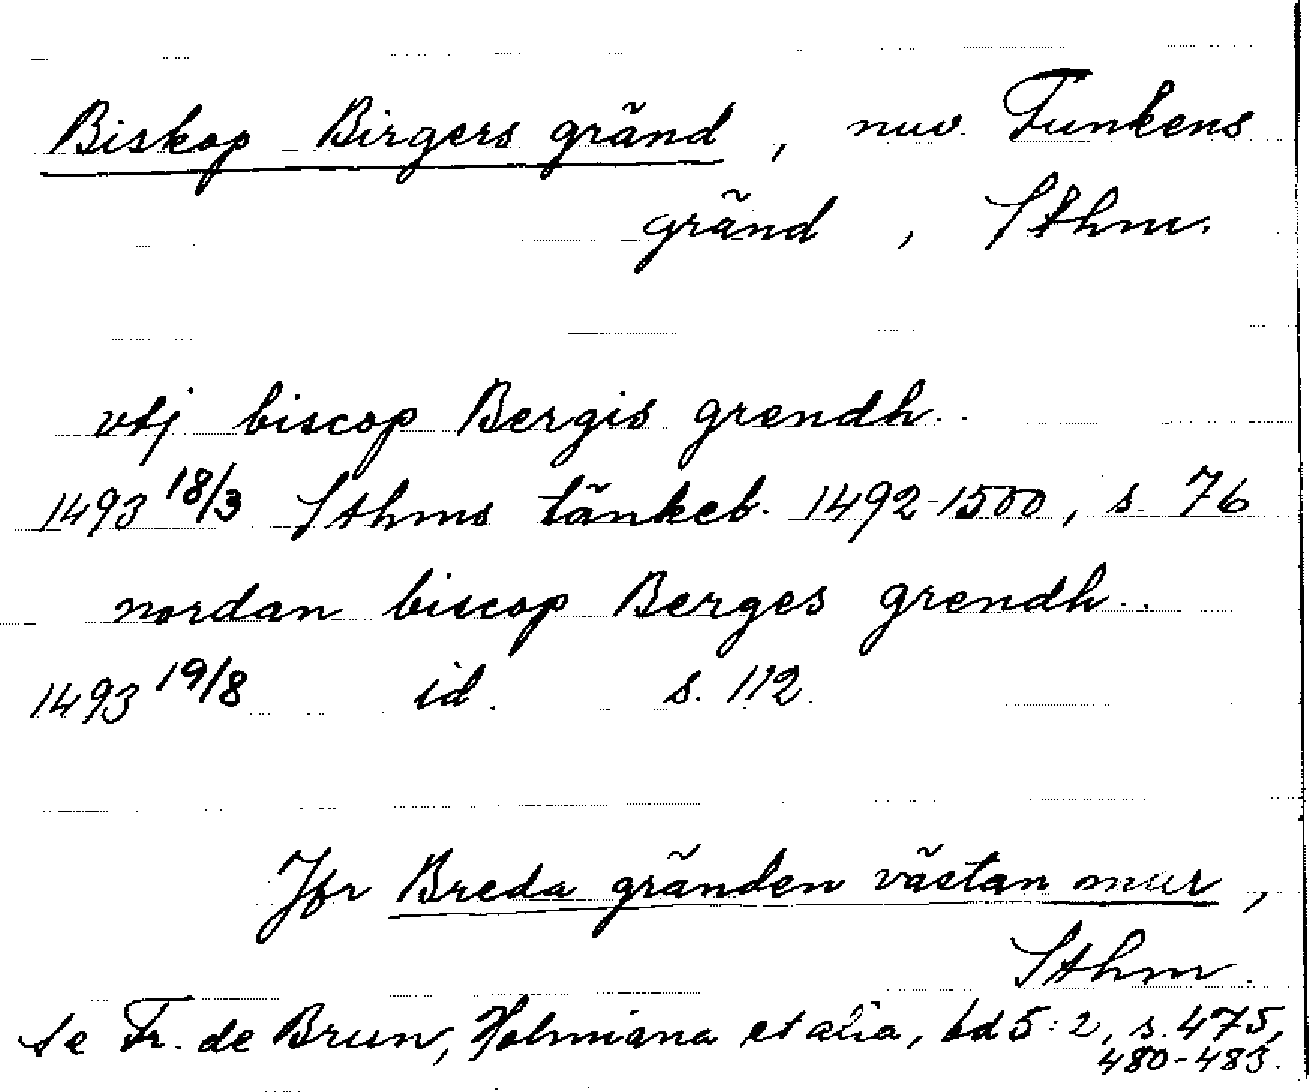 Biskop Birgers gränd, nuv. Funkens
gränd, Sthm.
vtj biscop Bergis grendh..
1493 18/3 Sthms tänkeb. 1492-1500, s. 76
nordan biscop Berges grendh..
1493 19/8 id. s. 112.
Jfr Breda gränden västan mur,
Sthm.
Se Fr. de Brun, Holmiana et alia, bd 5:2, s. 475,
480-483.